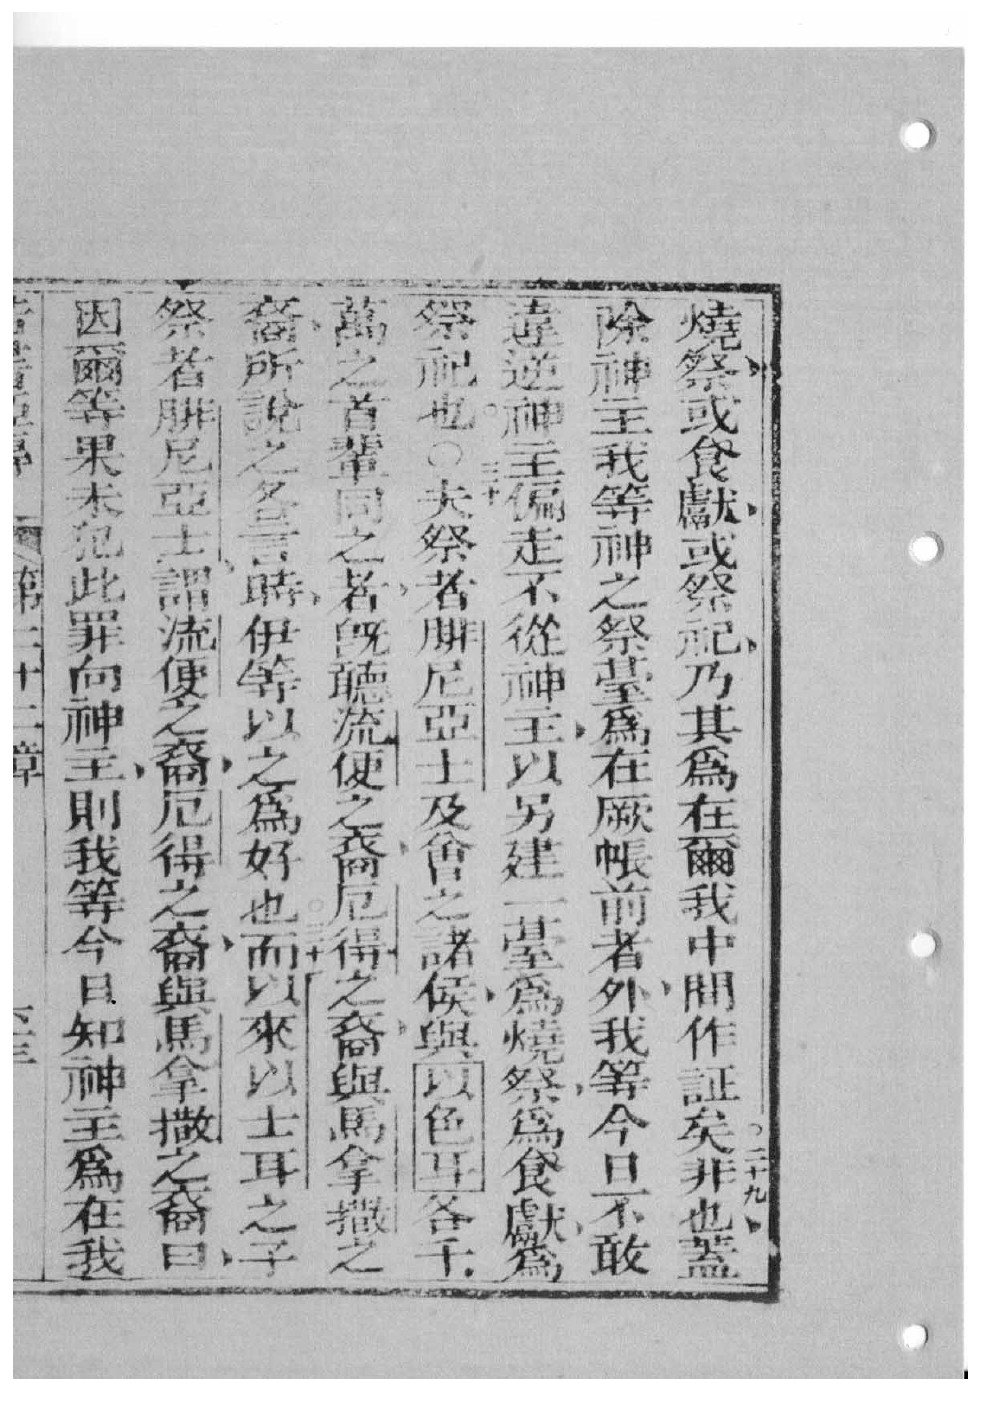 燒祭或食獻或祭祀乃其爲在爾我中間作証矣非也蓋
二十九
除神主我等神之祭臺爲在厥帳前者外我等今日不敢
違逆神主偏走不從神主以另建一臺爲燒祭爲食獻爲
祭祀也○夫祭者腓尼亞士及會之諸侯與以色耳各千
三十
萬之首輩同之者旣聽流便之裔厄得之裔與馬拿撒之
裔所說之各言時伊等以之爲好也而以來以士耳之子
三十一
祭者腓尼亞士謂流便之裔厄得之裔與馬拿撒之裔曰
因爾等果未犯此罪向神主則我等今日知神主爲在我
第二十二章